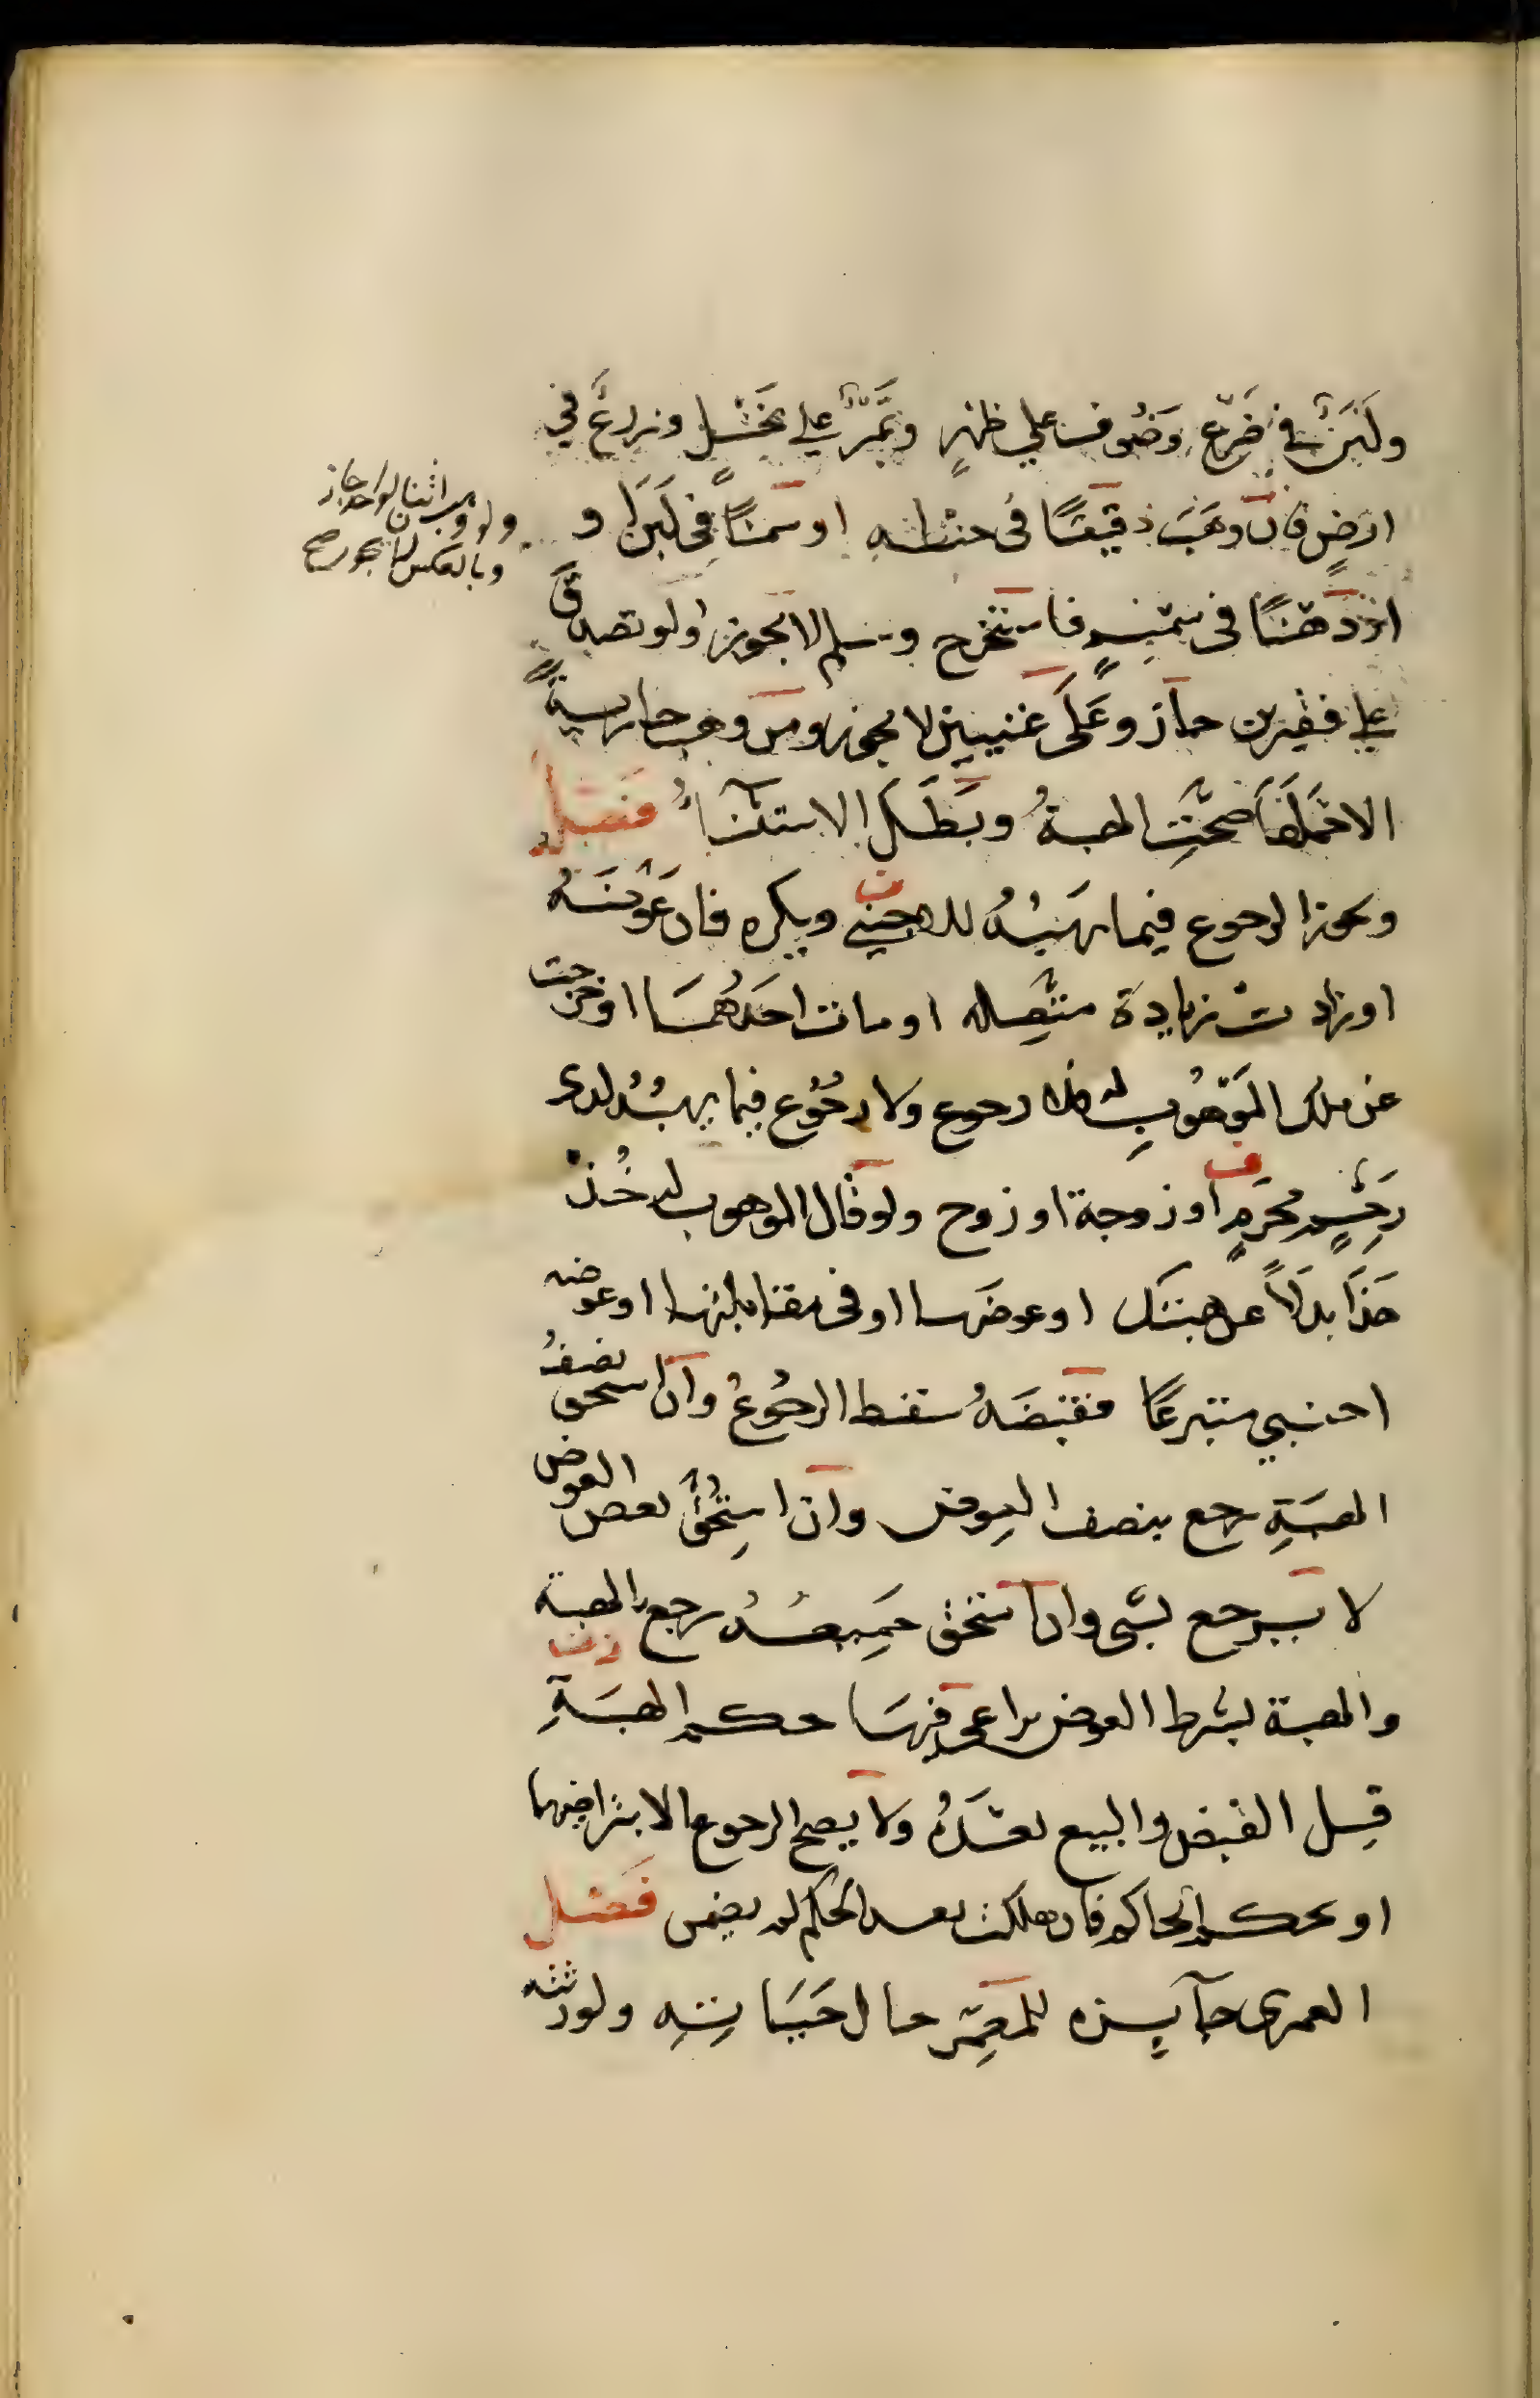 ولَبَنٌ في ضَرْعٍ وصُوف على ظهرٍ وتَمْرٌ على نخْلٍ وزرعٌ في
ارضٍ فان وهَبَ دقيقًا في حنطه او سمنًا في لَبَنٍ او
دُهنًا في سمْسِمٍ فاستخرج وسلم لا يجوز ولو تصدقَ
على فقيرين جاز وعَلَى غنيين لا يجوز ومن وهب جاريةً
الا حَمْلَهَا صحَّتِ الهبةُ وبَطَلَ الاستثنَاءُ فَصْل
ويجوز الرجوع فيما يَهَبُهُ للاجنبي ويكره فان عَوَّضَهُ
او زادت زيادة متصِله او مات احَدُهُمَا او خرجت
عن ملك المَوهُوبِ له فلا رجوع ولا رجُوع فيما يهبُه لذي
رَحِمٍ محرَمٍ او زوجة او زوج ولو قال الموهوب له خُذْ
هَذَا بدلاً عن هبتك او عوضها او في مقابلتها او عوضه
اجنبي متبرعًا فقبَضَهُ سقط الرجُوعُ وان استحق نصفُ
الهبَةِ رجع بنصف العوض وان استُحِقَّ بعض العوض
لا يرجع بشي وان استحق جَمِيعُهُ رجع بالهبة
والهبة بشرط العوض يراعى فيهَا حكم الهبَةِ
قبل القبض والبيع بعْدَهُ ولا يصح الرجوع الا بتراضيهما
او بحكم الحاكم فان هلكت بعد الحكم لم يضمن فَصْل
العمرى جآيزه للمعمَر حال حَيَاتِهِ ولورثته
ولو وهب اثنان لواحد جاز
وبالعكس لا يجوز صح